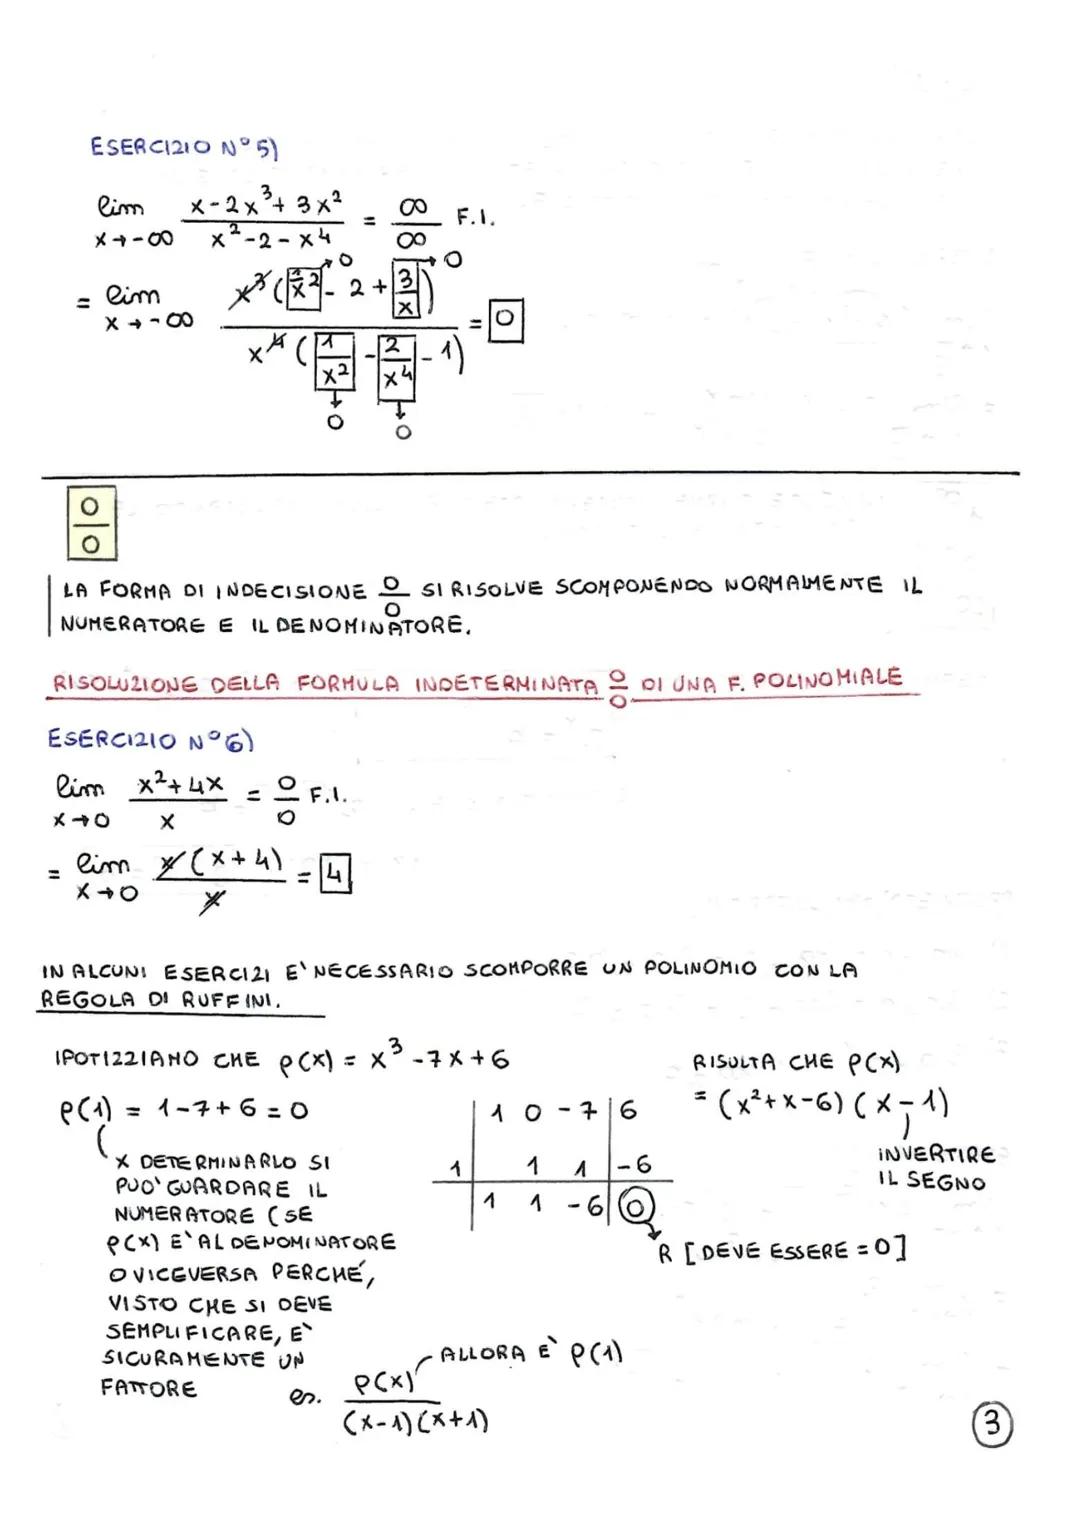 ESERCIZIO N° 5)
lim x→-∞ (x-2x³+3x²)/(x²-2-x⁴) = ∞/∞ F.I.
= lim x→-∞ x³(1/x² - 2 + 3/x)/x⁴(1/x² - 2/x⁴ - 1) = 0
→0 →0
↓0 ↓0
0/0
LA FORMA DI INDECISIONE 0/0 SI RISOLVE SCOMPONENDO NORMALMENTE IL
NUMERATORE E IL DENOMINATORE.
RISOLUZIONE DELLA FORMULA INDETERMINATA 0/0 DI UNA F. POLINOMIALE
ESERCIZIO N° 6)
lim x→0 (x²+4x)/x = 0/0 F.I.
= lim x→0 x(x+4)/x = 4
IN ALCUNI ESERCIZI E' NECESSARIO SCOMPORRE UN POLINOMIO CON LA
REGOLA DI RUFFINI.
IPOTIZZIAMO CHE P(X) = X³-7X+6
P(1) = 1-7+6=0
X DETERMINARLO SI
PUO' GUARDARE IL
NUMERATORE (SE
P(X) E' AL DENOMINATORE
O VICEVERSA PERCHÉ,
VISTO CHE SI DEVE
SEMPLIFICARE, E'
SICURAMENTE UN
FATTORE
es. P(X)/(X-1)(X+1)
ALLORA E' P(1)
1 0 -7 6
1 1 1 -6
1 1 -6 0
R [DEVE ESSERE = 0]
RISULTA CHE P(X)
= (X²+X-6)(X-1)
INVERTIRE
IL SEGNO
3